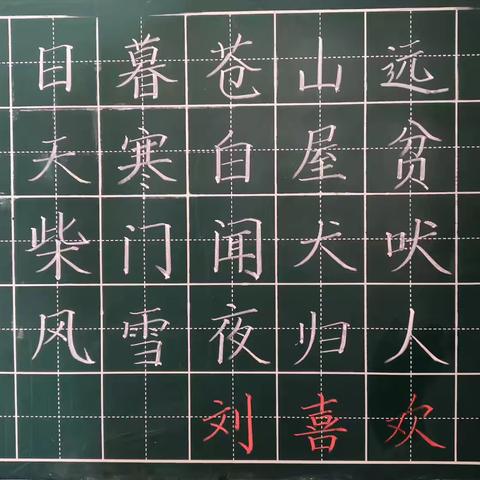 日暮苍山远
天寒白屋贫
柴门闻犬吠
风雪夜归人
刘喜欢